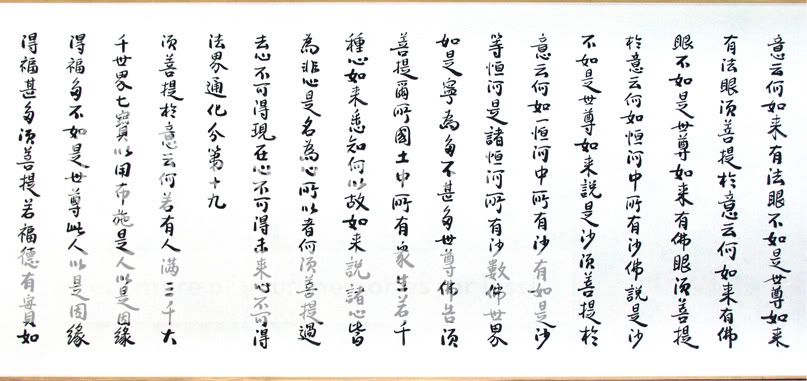 意云何如来有法眼不如是世尊如来
有法眼须菩提於意云何如来有佛
眼不如是世尊如来有佛眼须菩提
於意云何如恒河中所有沙佛說是沙
不如是世尊如来說是沙须菩提於
意云何如一恒河中所有沙有如是沙
等恒河是諸恒河所有沙數佛世界
如是寧為多不甚多世尊佛告须
菩提爾所國土中所有眾生若干
種心如来悉知何以故如来說諸心皆
為非心是名為心所以者何须菩提過
去心不可得現在心不可得未来心不可得
法界通化分第十九
须菩提於意云何若有人滿三千大
千世界七寶以用布施是人以是因緣
得福多不如是世尊此人以是因緣
得福甚多须菩提若福德有實如